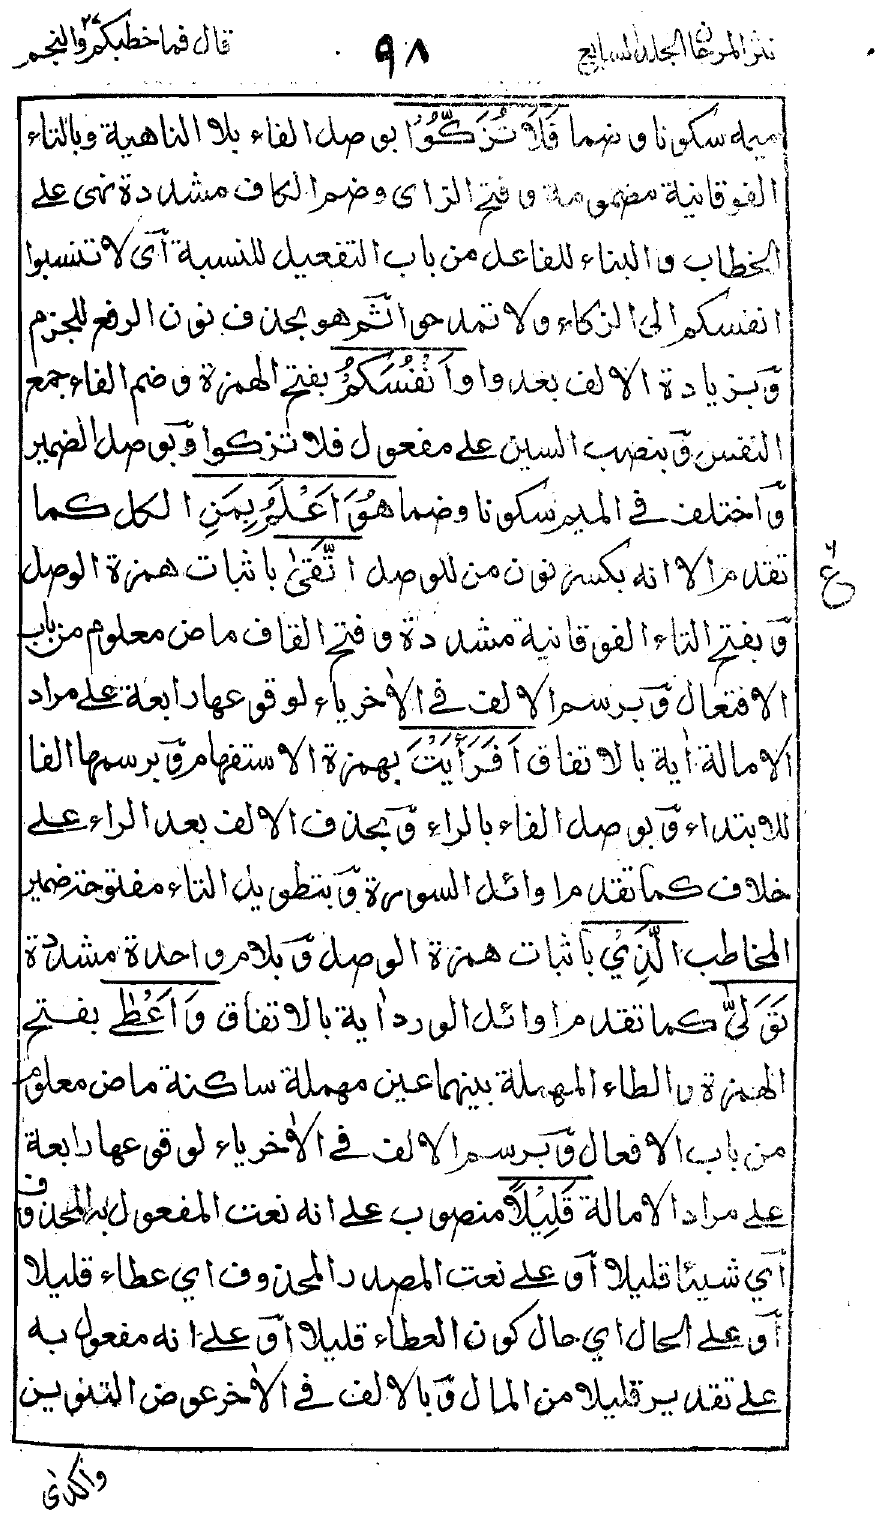 نثر المرجان المجلد السابع ٩٨ قال فما خطبكم ٢٧ والنجم
ميمه سكونا وضما فَلَا تُزَكُّوْا بوصل الفاء بلا الناهية وبالتاء
الفوقانية مضمومة وفتح الزاى وضم الكاف مشددة نهى على
الخطاب والبناء للفاعل من باب التفعيل للنسبة اى لا تنسبوا
انفسكم الى الزكاء ولا تمدحوا ثم هو بحذف نون الرفع للجزم
وبزيادة الالف بعد واو اَنْفُسَكُمْ بفتح الهمزة وضم الفاء جمع
النفس وبنصب السين على مفعول فلا تزكوا وبوصل الضمير
واختلف فى الميم سكونا وضما هُوَ اَعْلَمُ بِمَنِ الكل كما
تقدم الا انه بكسر نون من للوصل اتَّقَىٰ باثبات همزة الوصل
وبفتح التاء الفوقانية مشددة وفتح القاف ماض معلوم من باب
الافتعال وبرسم الالف فى الاخر ياء لوقوعها رابعة على مراد
الامالة اية بالاتفاق اَفَرَأَيْتَ بهمزة الاستفهام وبرسمها الفا
للابتداء وبوصل الفاء بالراء وبحذف الالف بعد الراء على
خلاف كما تقدم اوائل السورة وبتطويل التاء مفتوحة ضمير
المخاطب الَّذِيْ باثبات همزة الوصل وبلام واحدة مشددة
تَوَلَّىٰ كما تقدم اوائل الورد اية بالاتفاق وَاَعْطٰى بفتح
الهمزة والطاء المهملة بينهما عين مهملة ساكنة ماض معلوم
من باب الافعال وبرسم الالف فى الاخر ياء لوقوعها رابعة
على مراد الامالة قَلِيْلًا منصوب على انه نعت المفعول به المحذوف
اي شيئا قليلا او على نعت المصدر المحذوف اي عطاء قليلا
او على الحال اي حال كون العطاء قليلا او على انه مفعول به
على تقدير قليلا من المال وبالالف فى الاخر عوض التنوين
ع
واكدى